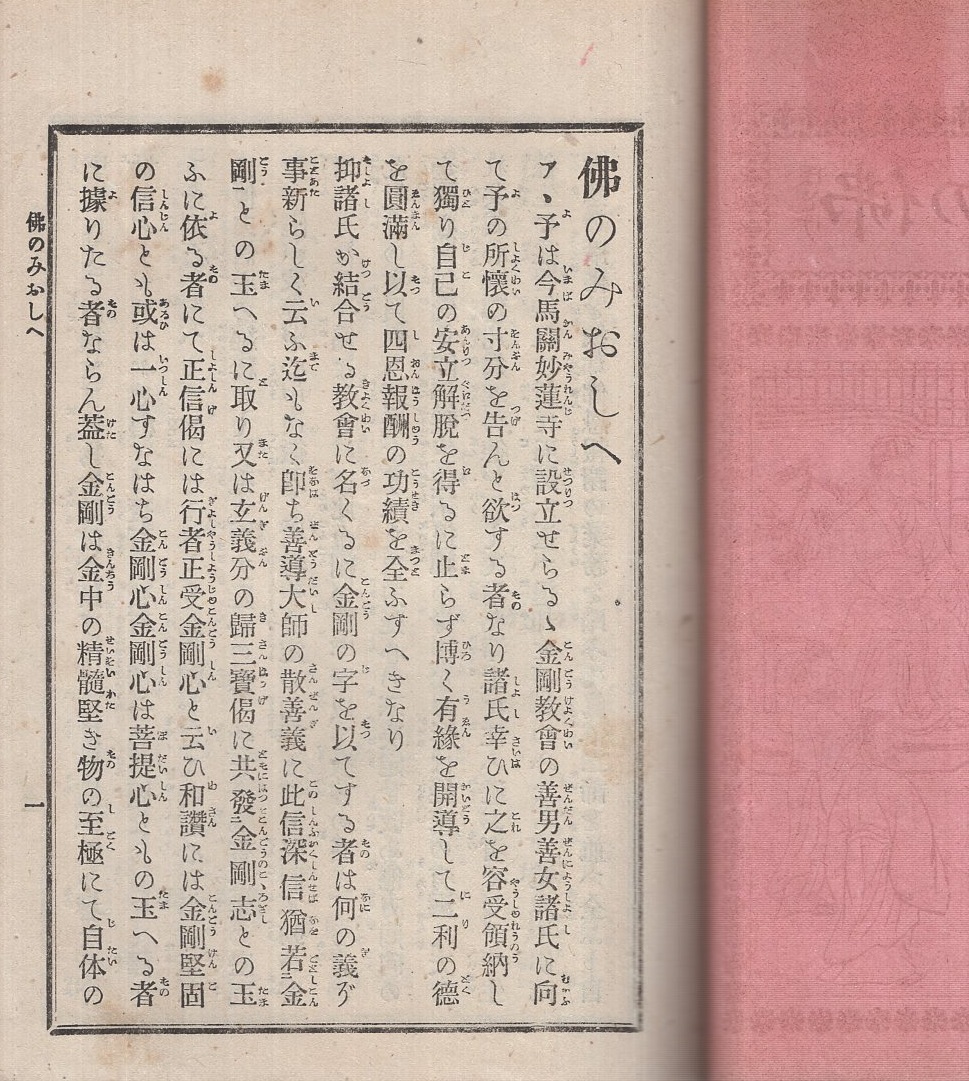 佛のみおしへ
アヽ予は今馬關妙蓮寺に設立せらるゝ金剛教會の善男善女諸氏に向
て予の所懷の寸分を告んと欲する者なり諸氏幸ひに之を容受領納し
て獨り自己の安立解脱を得るに止らず博く有緣を開導して二利の德
を圓滿し以て四恩報酬の功績を全ふすへきなり
抑諸氏か結合せる教會に名くるに金剛の字を以てする者は何の義ぞ
事新らしく云ふ迄もなく即ち善導大師の散善義に此信深信猶若金
剛との玉へるに取り又は玄義分の歸三寶偈に共發金剛志との玉
ふに依る者にて正信偈には行者正受金剛心と云ひ和讚には金剛堅固
の信心とも或は一心すなはち金剛心金剛心は菩提心ともの玉へる者
に據りたる者ならん葢し金剛は金中の精髓堅き物の至極にて自体の
佛のみおしへ
一